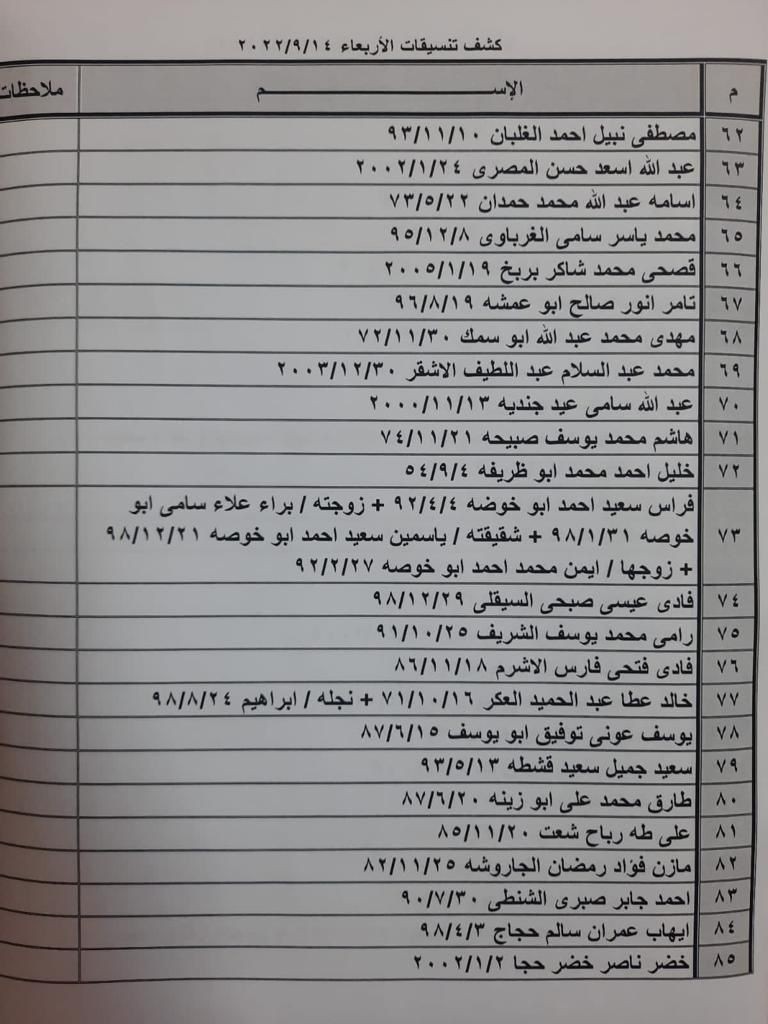 كشف تنسيقات الأربعاء ٢٠٢٢/٩/١٤
م الإســــــــم ملاحظات
٦٢ مصطفى نبيل احمد الغلبان ٩٣/١١/١٠
٦٣ عبد الله اسعد حسن المصرى ٢٠٠٢/١/٢٤
٦٤ اسامه عبد الله محمد حمدان ٧٣/٥/٢٢
٦٥ محمد ياسر سامى الغرباوى ٩٥/١٢/٨
٦٦ قصحى محمد شاكر بربخ ٢٠٠٥/١/١٩
٦٧ تامر انور صالح ابو عمشه ٩٦/٨/١٩
٦٨ مهدى محمد عبد الله ابو سمك ٧٢/١١/٣٠
٦٩ محمد عبد السلام عبد اللطيف الاشقر ٢٠٠٣/١٢/٣٠
٧٠ عبد الله سامى عيد جنديه ٢٠٠٠/١١/١٣
٧١ هاشم محمد يوسف صبيحه ٧٤/١١/٢١
٧٢ خليل احمد محمد ابو ظريفه ٥٤/٩/٤
٧٣ فراس سعيد احمد ابو خوضه ٩٢/٤/٤ + زوجته / براء علاء سامى ابو
خوصه ٩٨/١/٣١ + شقيقته / ياسمين سعيد احمد ابو خوصه ٩٨/١٢/٢١
+ زوجها / ايمن محمد احمد ابو خوصه ٩٢/٢/٢٧
٧٤ فادى عيسى صبحى السيقلى ٩٨/١٢/٢٩
٧٥ رامى محمد يوسف الشريف ٩١/١٠/٢٥
٧٦ فادى فتحى فارس الاشرم ٨٦/١١/١٨
٧٧ خالد عطا عبد الحميد العكر ٧١/١٠/١٦ + نجله / ابراهيم ٩٨/٨/٢٤
٧٨ يوسف عونى توفيق ابو يوسف ٨٧/٦/١٥
٧٩ سعيد جميل سعيد قشطه ٩٣/٥/١٣
٨٠ طارق محمد على ابو زينه ٨٧/٦/٢٠
٨١ على طه رباح شعت ٨٥/١١/٢٠
٨٢ مازن فؤاد رمضان الجاروشه ٨٢/١١/٢٥
٨٣ احمد جابر صبرى الشنطى ٩٠/٧/٣٠
٨٤ ايهاب عمران سالم حجاج ٩٨/٤/٣
٨٥ خضر ناصر خضر حجا ٢٠٠٢/١/٢